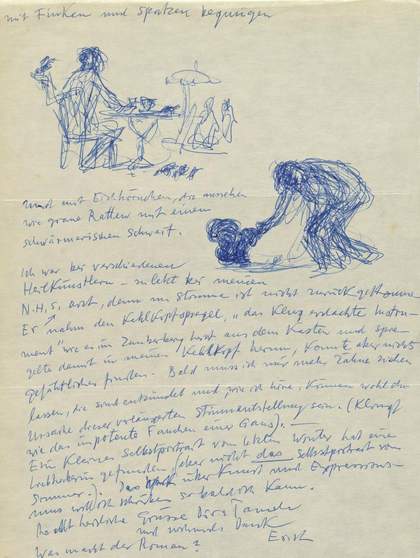 mit Finken und Spatzen begnügen
und mit Eichhörnchen, die aussehen
wie graue Ratten mit einem
schwärmerischen Schweif.
Ich war bei verschiedenen
Heilkünstlern – zuletzt bei meinem
N.H.S. arzt, denn m. Stimme ist nicht zurück gekommen
Er nahm den Kehlkopfspiegel, "das klug erdachte Instru-
ment" wie es im Zauberberg heisst aus dem Kasten und spie-
gelte damit in meinem Kehlkopf herum, konnte aber nichts
gefährliches finden. Bald muss ich mir mehr Zähne ziehen
lassen, die sind entzündet und wie ich höre, können wohl die
Ursache dieser verlängerten Stimmentstellung sein. (Klingt
wie das impotente Fauchen einer Gans). —
Ein kleines Selbstportrait vom letzten Winter hat eine
Liebhaberin gefunden (aber nicht das Selbstportrait vom
Sommer.). Das über Kunst und Expressionis-
mus will ich schicken so bald ich kann.
herzliche Grüsse Dir &
und nochmals Dank
Was macht der Roman? Erich